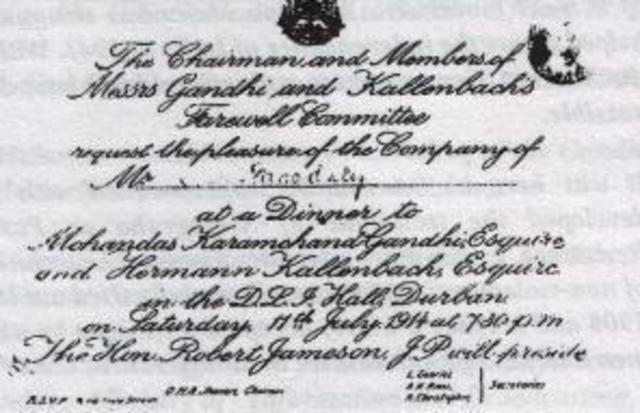 The Chairman and Members of
Messrs Gandhi and Kallenbach's
Farewell Committee
request the pleasure of the Company of
Mr
at a Dinner to
Mohandas Karamchand Gandhi, Esquire
and Hermann Kallenbach, Esquire
in the D.L.I. Hall, Durban
on Saturday, 11th July, 1914 at 7.30 p.m
The Hon. Robert Jameson, J.P. will preside
L. Gabriel
R.S.V.P. Chairman Secretaries
A. Christopher